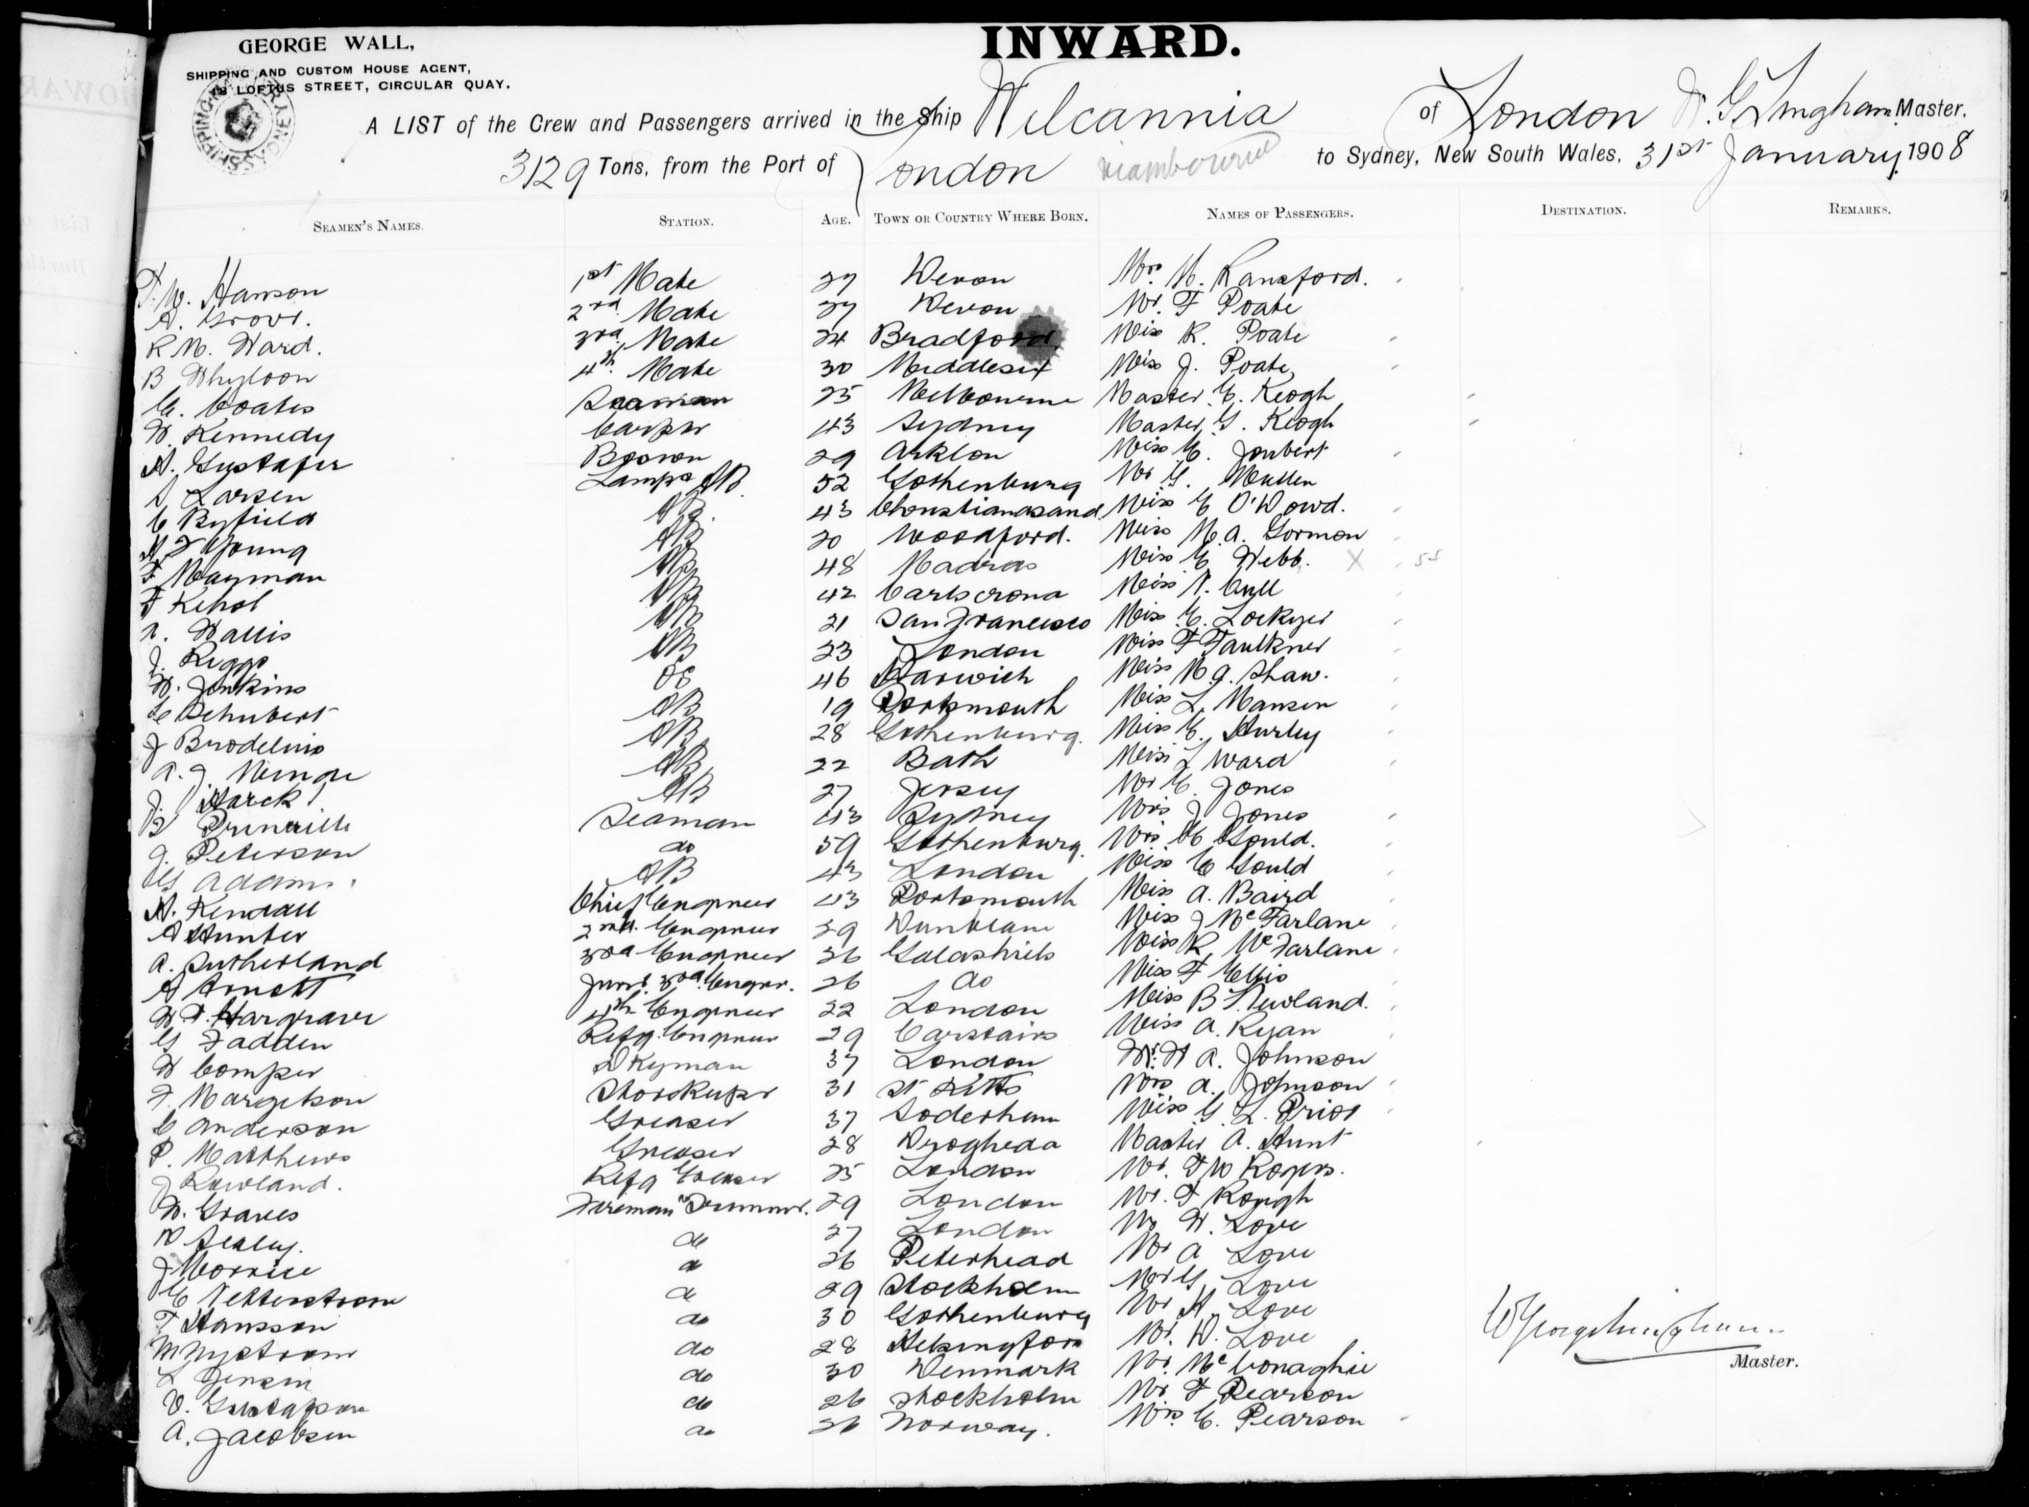 INWARD.
GEORGE WALL,
SHIPPING AND CUSTOM HOUSE AGENT,
LOFTUS STREET, CIRCULAR QUAY.
A LIST of the Crew and Passengers arrived in the Ship Wilcannia of London W. G. Lingham Master,
3129 Tons, from the Port of London to Sydney, New South Wales, 31st January 1908
SEAMEN'S NAMES. STATION. AGE. TOWN OR COUNTRY WHERE BORN. NAMES OF PASSENGERS. DESTINATION. REMARKS.
F. W. Hanson 1st Mate Devon Mrs M. Ransford.
A. Grove. 2nd Mate Devon Mr. F Poate
R M. Ward. 3rd Mate 24 Bradford Miss R. Poate
B 4th Mate 30 Middlesex Miss J. Poate
Coates Seaman 25 Melbourne Master C. Keogh
W. Kennedy Carptr 43 Sydney Master G. Keogh
A. Bosson 29 Arklow Miss E. Joubert
Larsen Lamps AB 52 Gothenburg Mr G. Mullen
C Byfield AB. 43 Christiansand Miss E O'Dowd.
Young AB 20 Woodford. Miss M. A. Gorman
F Mayman AB 48 Madras Miss E Webb. X 55
F AB 42 Carlscrona Miss Cull
Wallis AB 21 San Francisco Miss E. Lockyer
J. Riggs AB 23 London Miss F Faulkner
W. Jenkins 46 Harwich Miss M. Shaw.
Schubert AB 19 Portsmouth Miss L. Mansen
J Brodelius AB 28 Gothenburg. Miss E. Hurley
AB 22 Bath Miss L Ward
J. AB 27 Jersey Mr C. Jones
Seaman 43 Sydney Mrs J Jones
Peterson do 59 Gothenburg. Mrs Gould.
G Adams. AB 43 London Miss E Gould
A. Kendall Chief Engineer 43 Portsmouth Miss A. Baird
A Hunter 2nd. Engineer 39 Dunblane Miss J McFarlane
A. Sutherland 3rd Engineer 26 Galashiels Miss R McFarlane
A Arnott Junr. 3rd Enginr. 26 do Miss F Ellis
W. F. Hargrave 4th Engineer 22 London Miss B Newland.
G Fadden Refg. Engineer 29 Carstairs Miss A. Ryan
W Comper Dkyman 37 London Mr. W A. Johnson
F. Margetson Storekeeper 31 St Kitts Mrs A. Johnson
C Anderson Greaser 37 Soderham Miss G. L. Prior
P. Matthews Greaser 28 Drogheda Master A. Hunt
J Rowland. Refg Greaser 25 London Mr. F W Rogers.
W. Graves Fireman Trimmer. 29 London Mr. F Keough
Sealey. do 27 London Mr W. Love
J Morrice do 26 Peterhead Mr A Love
C Vetterstrom do 29 Stockholm Mr G. Love
F Hansson do 30 Gothenburg Mr H. Love
M Nystrom do 28 Helsingfors Mr. W. Love
L Jensen do 30 Denmark Mr. McConaghie
V. Gustafson do 26 Stockholm Mr F Pearson
A. Jacobsen do 26 Norway. Mrs. E. Pearson
W George Lingham
Master.